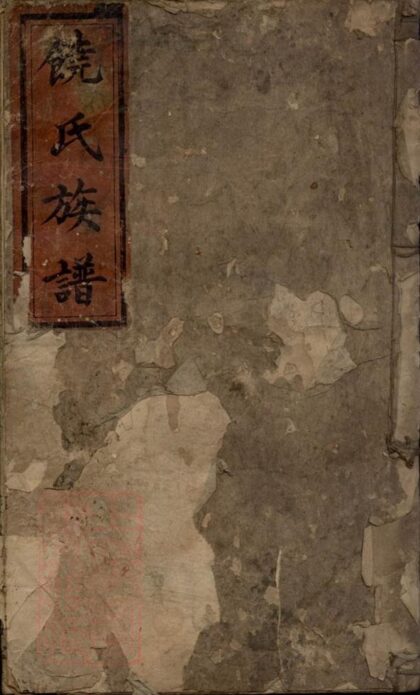 饒氏族譜